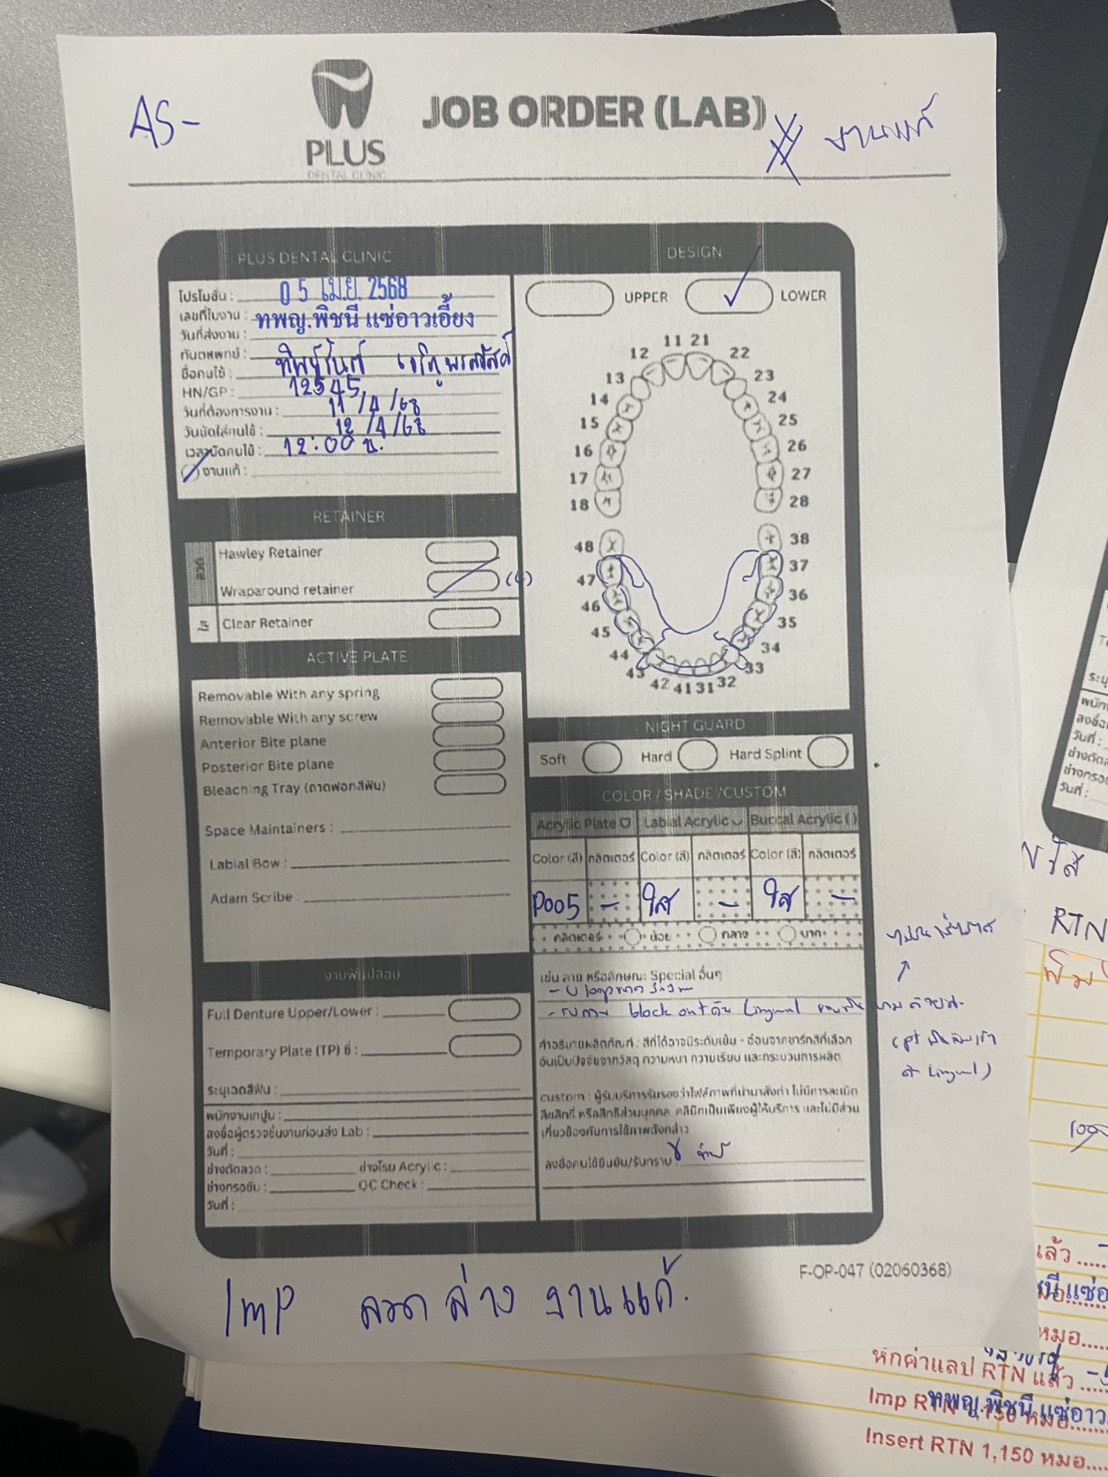 AS-
PLUS
DENTAL CLINIC
JOB ORDER (LAB)
งานแก้
PLUS DENTAL CLINIC
โปรโมชั่น : 05 เม.ย. 2568
เลขที่ใบงาน : ทพญ.พิชนี แซ่อาวเอี้ยง
วันที่ส่งงาน :
ทันตแพทย์ :
ชื่อคนไข้ :
HN/GP: 12545
วันที่ต้องการงาน : 11/4/68
วันนัดใส่คนไข้ : 12/4/68
เวลานัดคนไข้ : 12:00 น.
( ) งานแก้ :
RETAINER
ลวด
Hawley Retainer
Wraparound retainer
(L)
ใส
Clear Retainer
ACTIVE PLATE
Removable With any spring
Removable With any screw
Anterior Bite plane
Posterior Bite plane
Bleaching Tray (ถาดฟอกสีฟัน)
Space Maintainers :
Labial Bow :
Adam Scribe :
งานฟันปลอม
Full Denture Upper/Lower :
Temporary Plate (TP) ซี่ :
ระบุเฉดสีฟัน :
พนักงานเทปูน :
ลงชื่อผู้ตรวจชิ้นงานก่อนส่ง Lab :
วันที่ :
ช่างดัดลวด : ช่างโรย Acrylic :
ช่างกรอขัด : QC Check :
วันที่ :
DESIGN
UPPER
LOWER
11 21
12 22
13 23
14 24
15 25
16 26
17 27
18 28
48 38
47 37
46 36
45 35
44 34
43 33
42 41 31 32
NIGHT GUARD
Soft Hard Hard Splint
COLOR / SHADE /CUSTOM
Acrylic Plate Labial Acrylic Buccal Acrylic ( )
Color (สี) กลิตเตอร์ Color (สี) กลิตเตอร์ Color (สี) กลิตเตอร์
P005 - ใส - ใส -
กลิตเตอร์ น้อย กลาง มาก
เช่น ลาย หรือลักษณะ Special อื่นๆ
- U loop
block out Lingual
(pt
Lingual)
คำอธิบายผลิตภัณฑ์ : สีที่ได้อาจมีระดับเข้ม - อ่อนจากชาร์ทสีที่เลือก
อันเป็นปัจจัยจากวัสดุ ความหนา ความเรียบ และกระบวนการผลิต
custom : ผู้รับบริการรับรองว่าไฟล์ภาพที่นำมาสั่งทำ ไม่มีการละเมิด
ลิขสิทธิ์ หรือสิทธิส่วนบุคคล คลินิกเป็นเพียงผู้ให้บริการ และไม่มีส่วน
เกี่ยวข้องกับการใช้ภาพดังกล่าว
ลงชื่อคนไข้ยืนยัน/รับทราบ :
F-OP-047 (02060368)
Imp ลวด ล่าง งานแก้.
RTN
หักค่าแลป RTN แล้ว
Imp RTN 1,150 หมอ
ทพญ.พิชนี แซ่อาว
Insert RTN 1,150 หมอ....